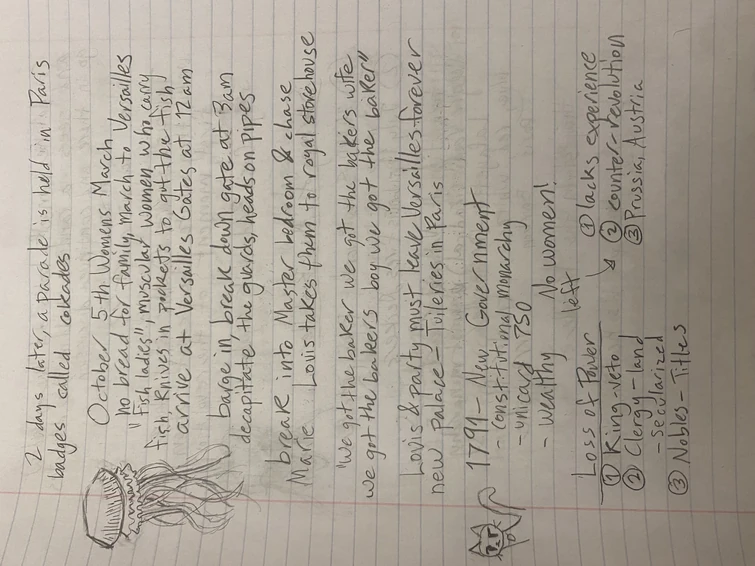 2 days later, a parade is held in Paris
badges called cokades
October 5th Womens March
no bread for family, march to Versailles
"fish ladies", muscular women who carry
fish, Knives in pockets to gut the fish
arrive at Versailles Gates at 12am
barge in, break down gate at 3am
decapitate the guards, heads on pipes
break into Master bedroom & chase
Marie Louis takes them to royal storehouse
"We got the baker we got the bakers wife
we got the bakers boy we got the baker"
Louis & party must leave Versailles forever
new palace - Tuileries in Paris
1791 - New Government
- constitutional monarchy
- unicard 750
- wealthy No women!
left
Loss of Power
① King - veto
② Clergy - land
- secularized
③ Nobles - Titles
① lacks experience
② counter-revolution
③ Prussia, Austria